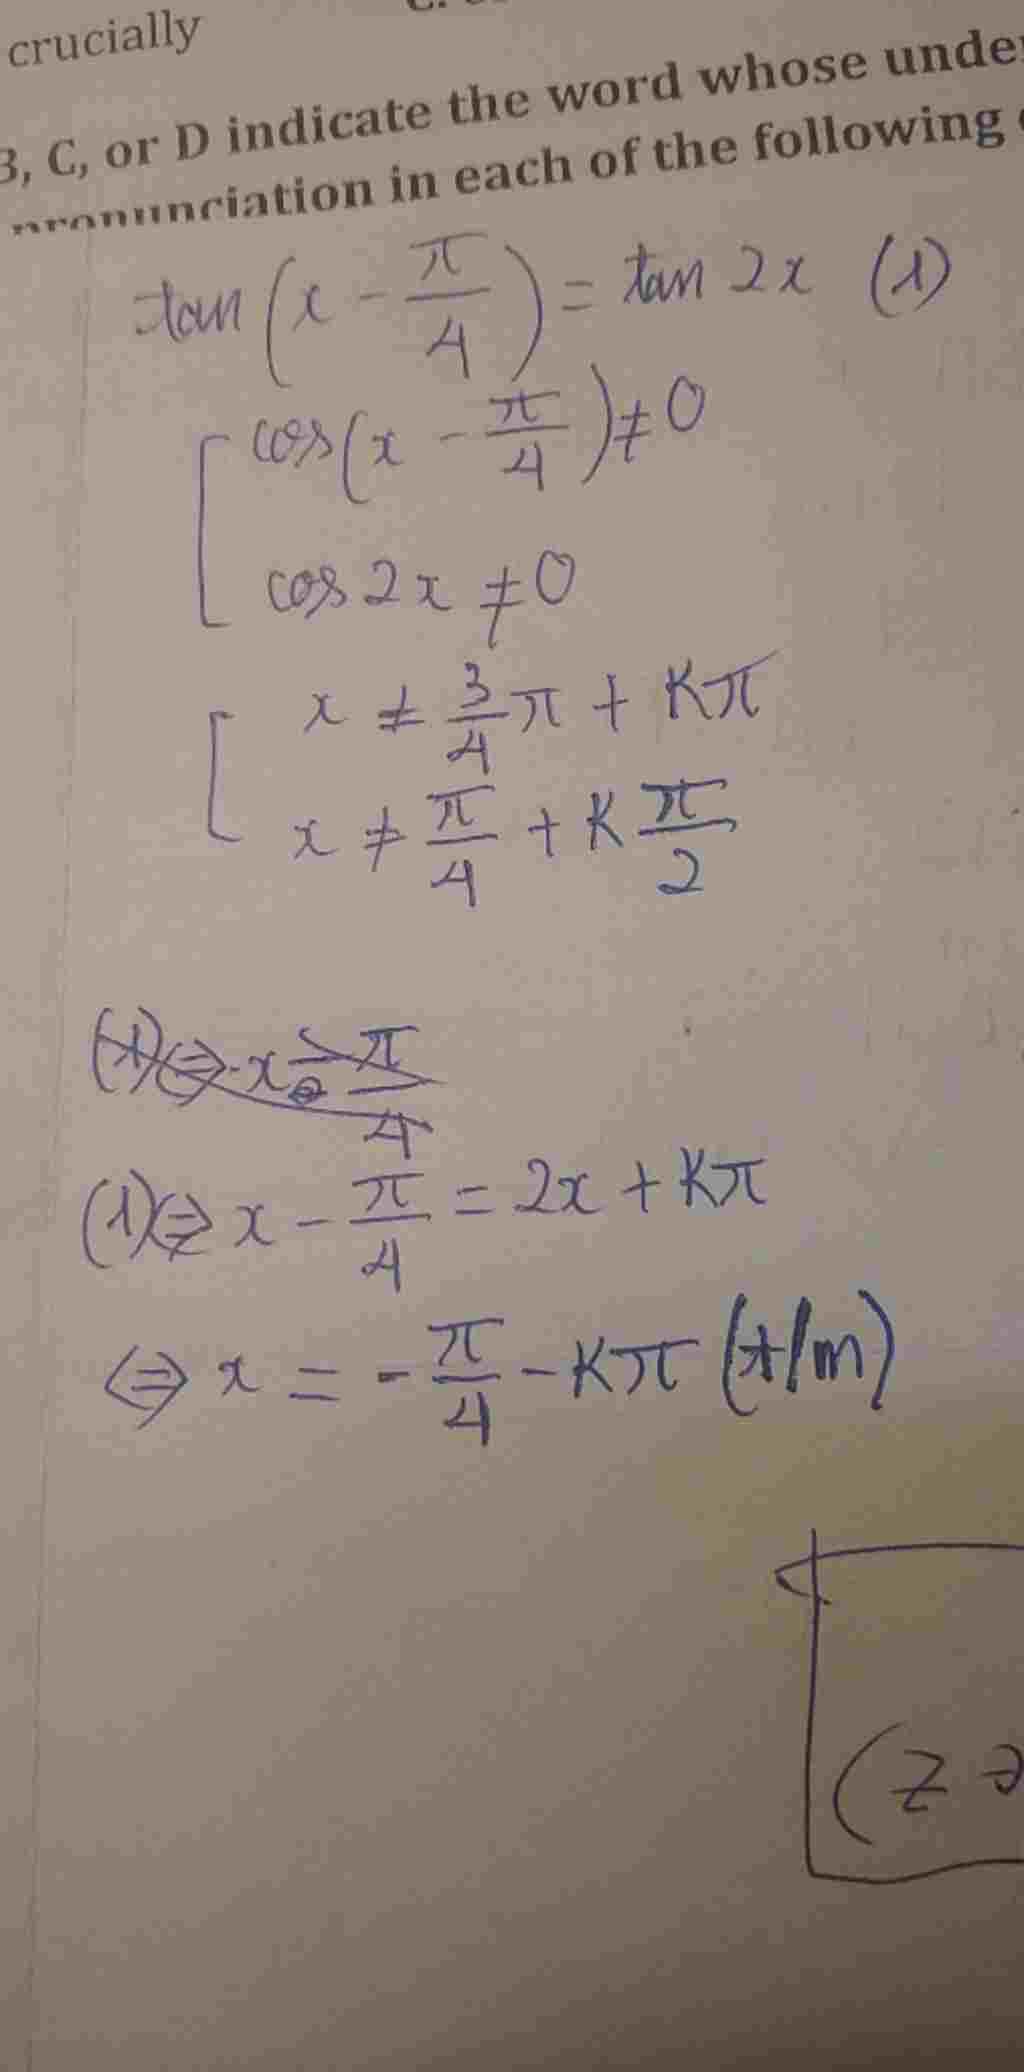 crucially
C, or D indicate the word whose
in each of the following
tan(x - π/4) = tan 2x (1)
[ cos(x - π/4) ≠ 0
cos 2x ≠ 0
[ x ≠ 3/4 π + Kπ
x ≠ π/4 + K π/2
(1) ⇔ x - π/4 = 2x + Kπ
⇔ x = - π/4 - Kπ (t/m)